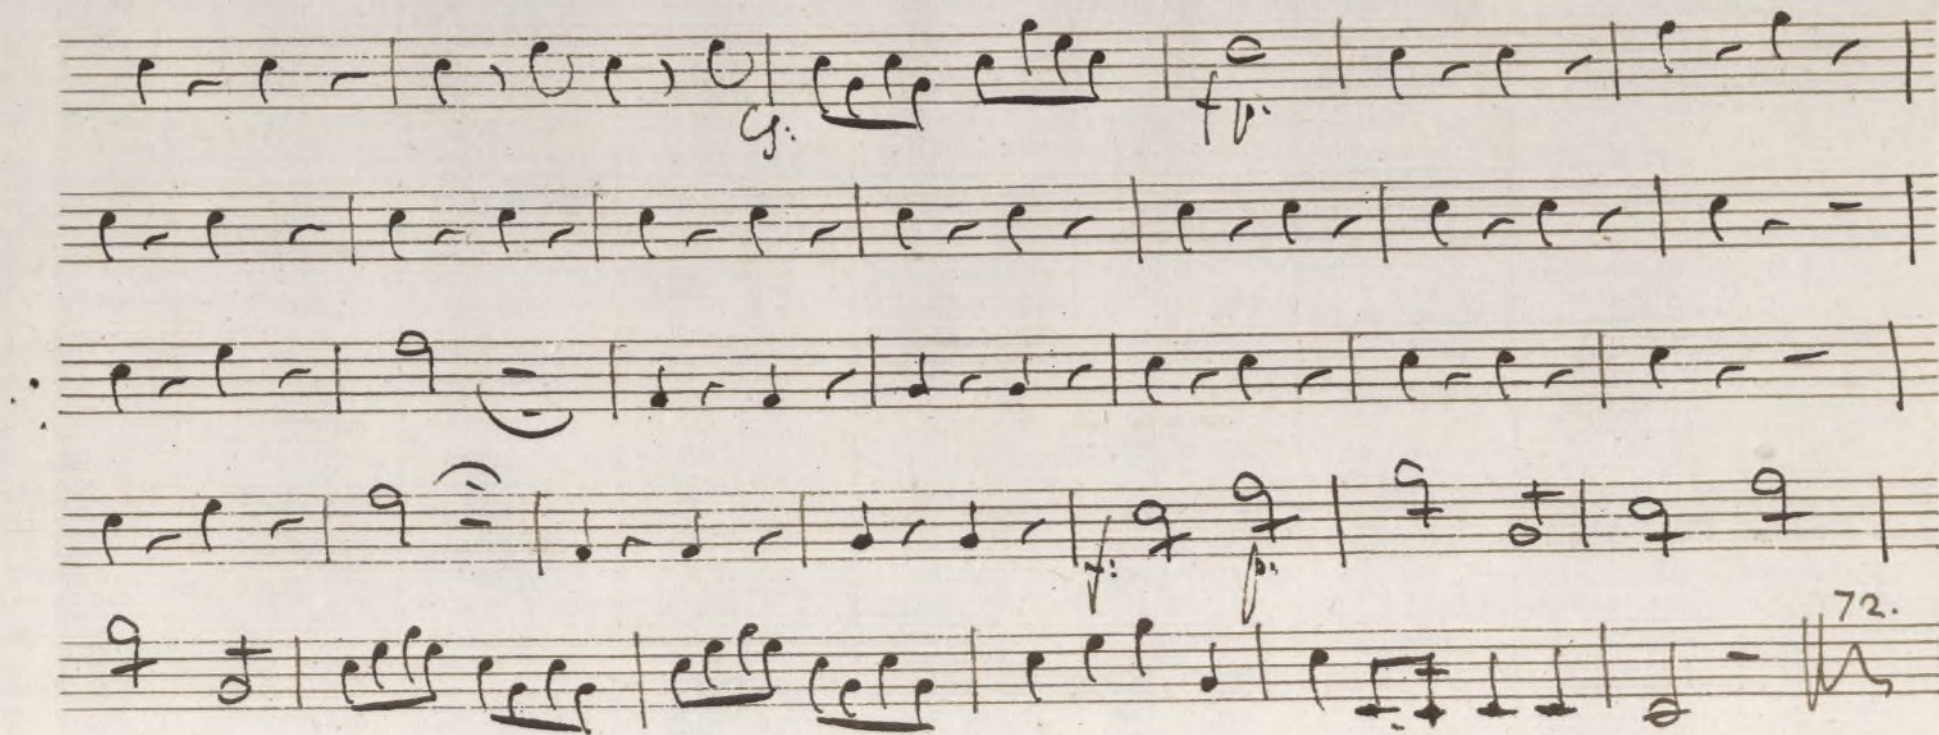 fp.
f: p:
72.